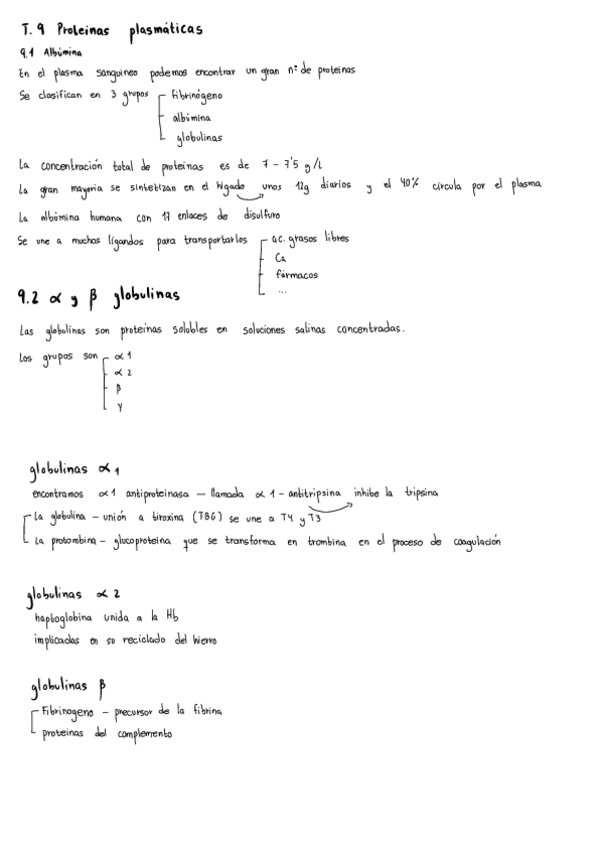 T. 9 Proteinas plasmáticas
9.1 Albúmina
En el plasma sanguineo podemos encontrar un gran nº de proteinas
Se clasifican en 3 grupos fibrinógeno
albúmina
globulinas
La concentración total de proteinas es de 7 - 7'5 g/L
La gran mayoria se sintetizan en el higado unos 12g diarios y el 40% circula por el plasma
La albúmina humana con 17 enlaces de disulfuro
Se une a muchos ligandos para transportarlos ac. grasos libres
Ca
fármacos
...
9.2 α y β globulinas
Las globulinas son proteinas solubles en soluciones salinas concentradas.
Los grupos son α 1
α 2
β
γ
globulinas α 1
encontramos α1 antiproteinasa — llamada α 1 - antitripsina inhibe la tripsina
La globulina - unión a tiroxina (TBG) se une a T4 y T3
La protombina - glucoproteina que se transforma en trombina en el proceso de coagulación
globulinas α 2
haptoglobina unida a la Hb
implicadas en su reciclado del hierro
globulinas β
Fibrinogeno - precursor de la fibrina
proteinas del complemento